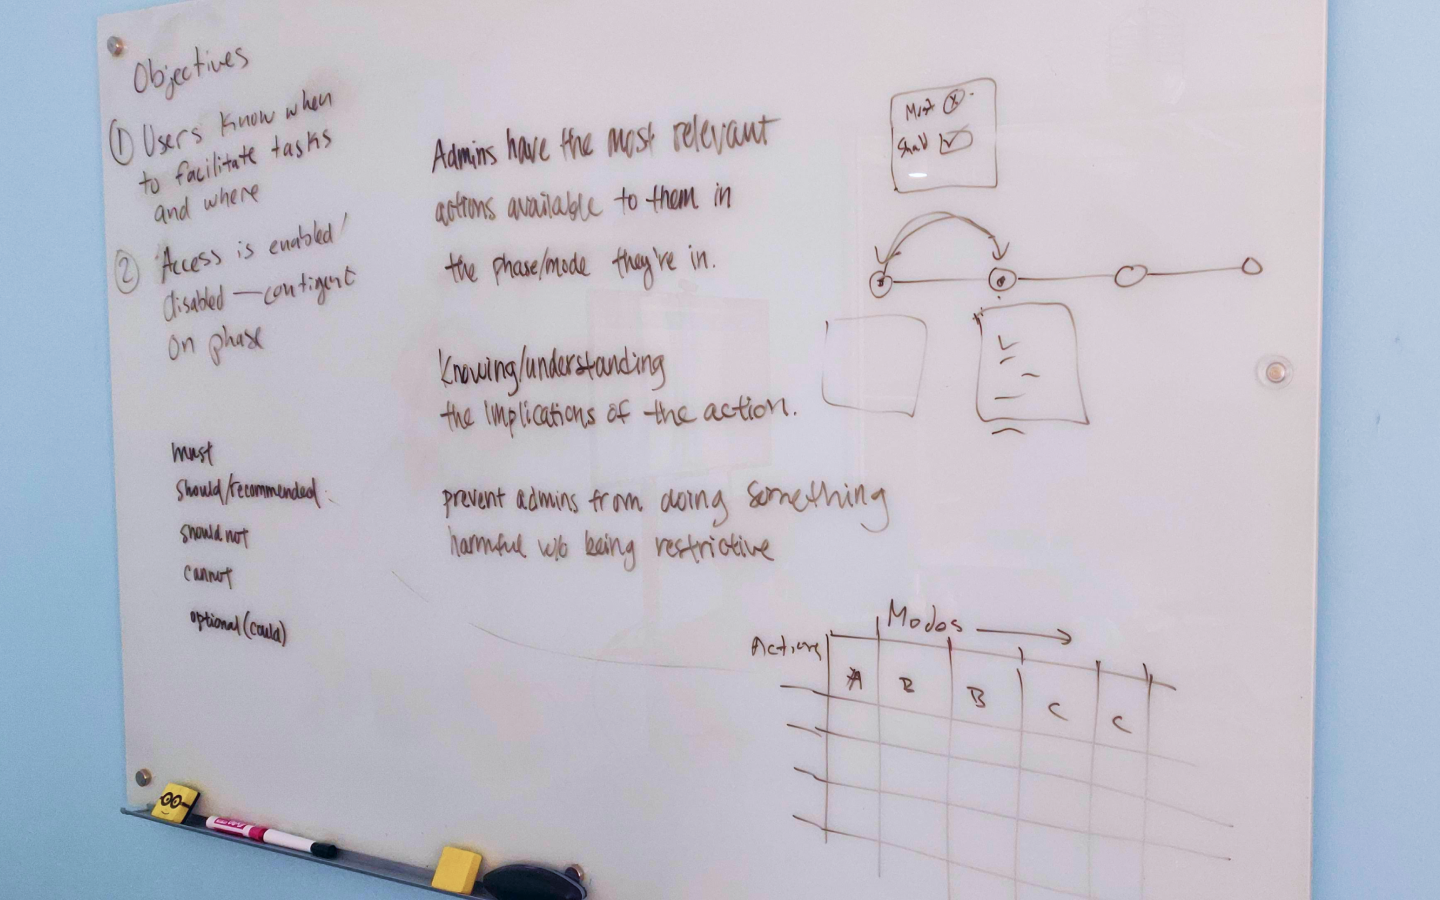 Objectives
① Users know when
to facilitate tasks
and where
② Access is enabled/
disabled — contigent
on phase
must
should/recommended
should not
cannot
optional (could)
Admins have the most relevant
actions available to them in
the phase/mode they're in.
Knowing/understanding
the implications of the action.
prevent admins from doing something
harmful w/o being restrictive
Must
Modes →
Actions
A B B C C